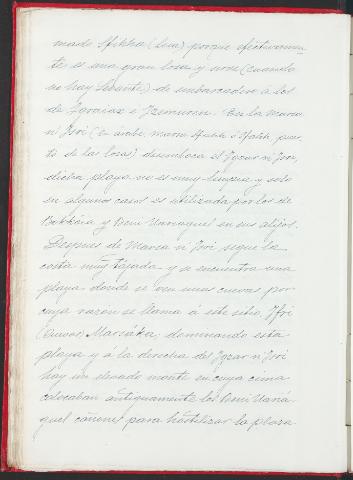 mado Sfikha (losa) porque efectivamen
te es una gran losa y sirve (cuando
no hay levante) de embarcadero á los
de Igraiar e Izemuren. En la Marsa
n' Isri (en arabe, Marsa puer
to de las losas) desemboca el Igzar n' Isri,
dicha playa no es muy limpia y solo
en algunos casos es utilizada por los de
Bokkóia y Beni Urriaguel en sus alijos.
Despues de Marsa n' Isri sigue la
costa muy tajada y se encuentra una
playa donde se ven unas cuevas por
cuya razon se llama á este sitio, Ifri
(Cuevas) Marsáka; dominando esta
playa y á la derecha del Igzar n' Isri
hay un elevado monte en cuya cima
colocaban antiguamente los Beni Urriá
guel cañones para hostilizar la plaza